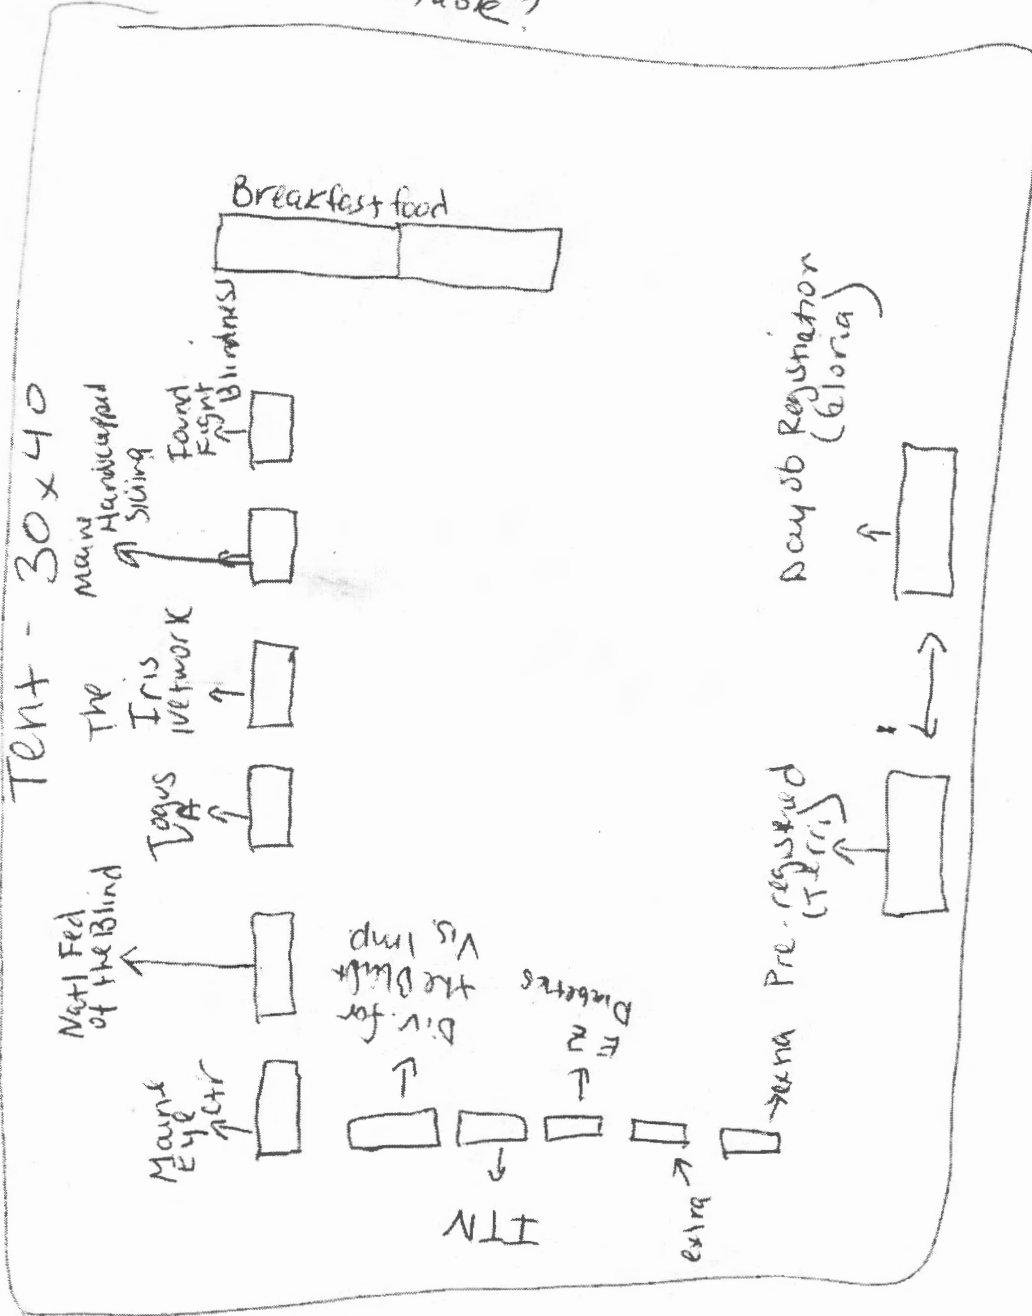 Table?
Tent - 30 x 40
Breakfast food
Found
Fight
Blindness
Maine
Handicapped
Skiing
The
Iris
Network
Togus
VA
Natl Fed
of the Blind
Maine
Eye
Ctr
Div. for
the Blind +
Vis. Imp
ITN
Diabetes
extra
extra
Pre-registered
(Terri)
Day of Registration
(Gloria)